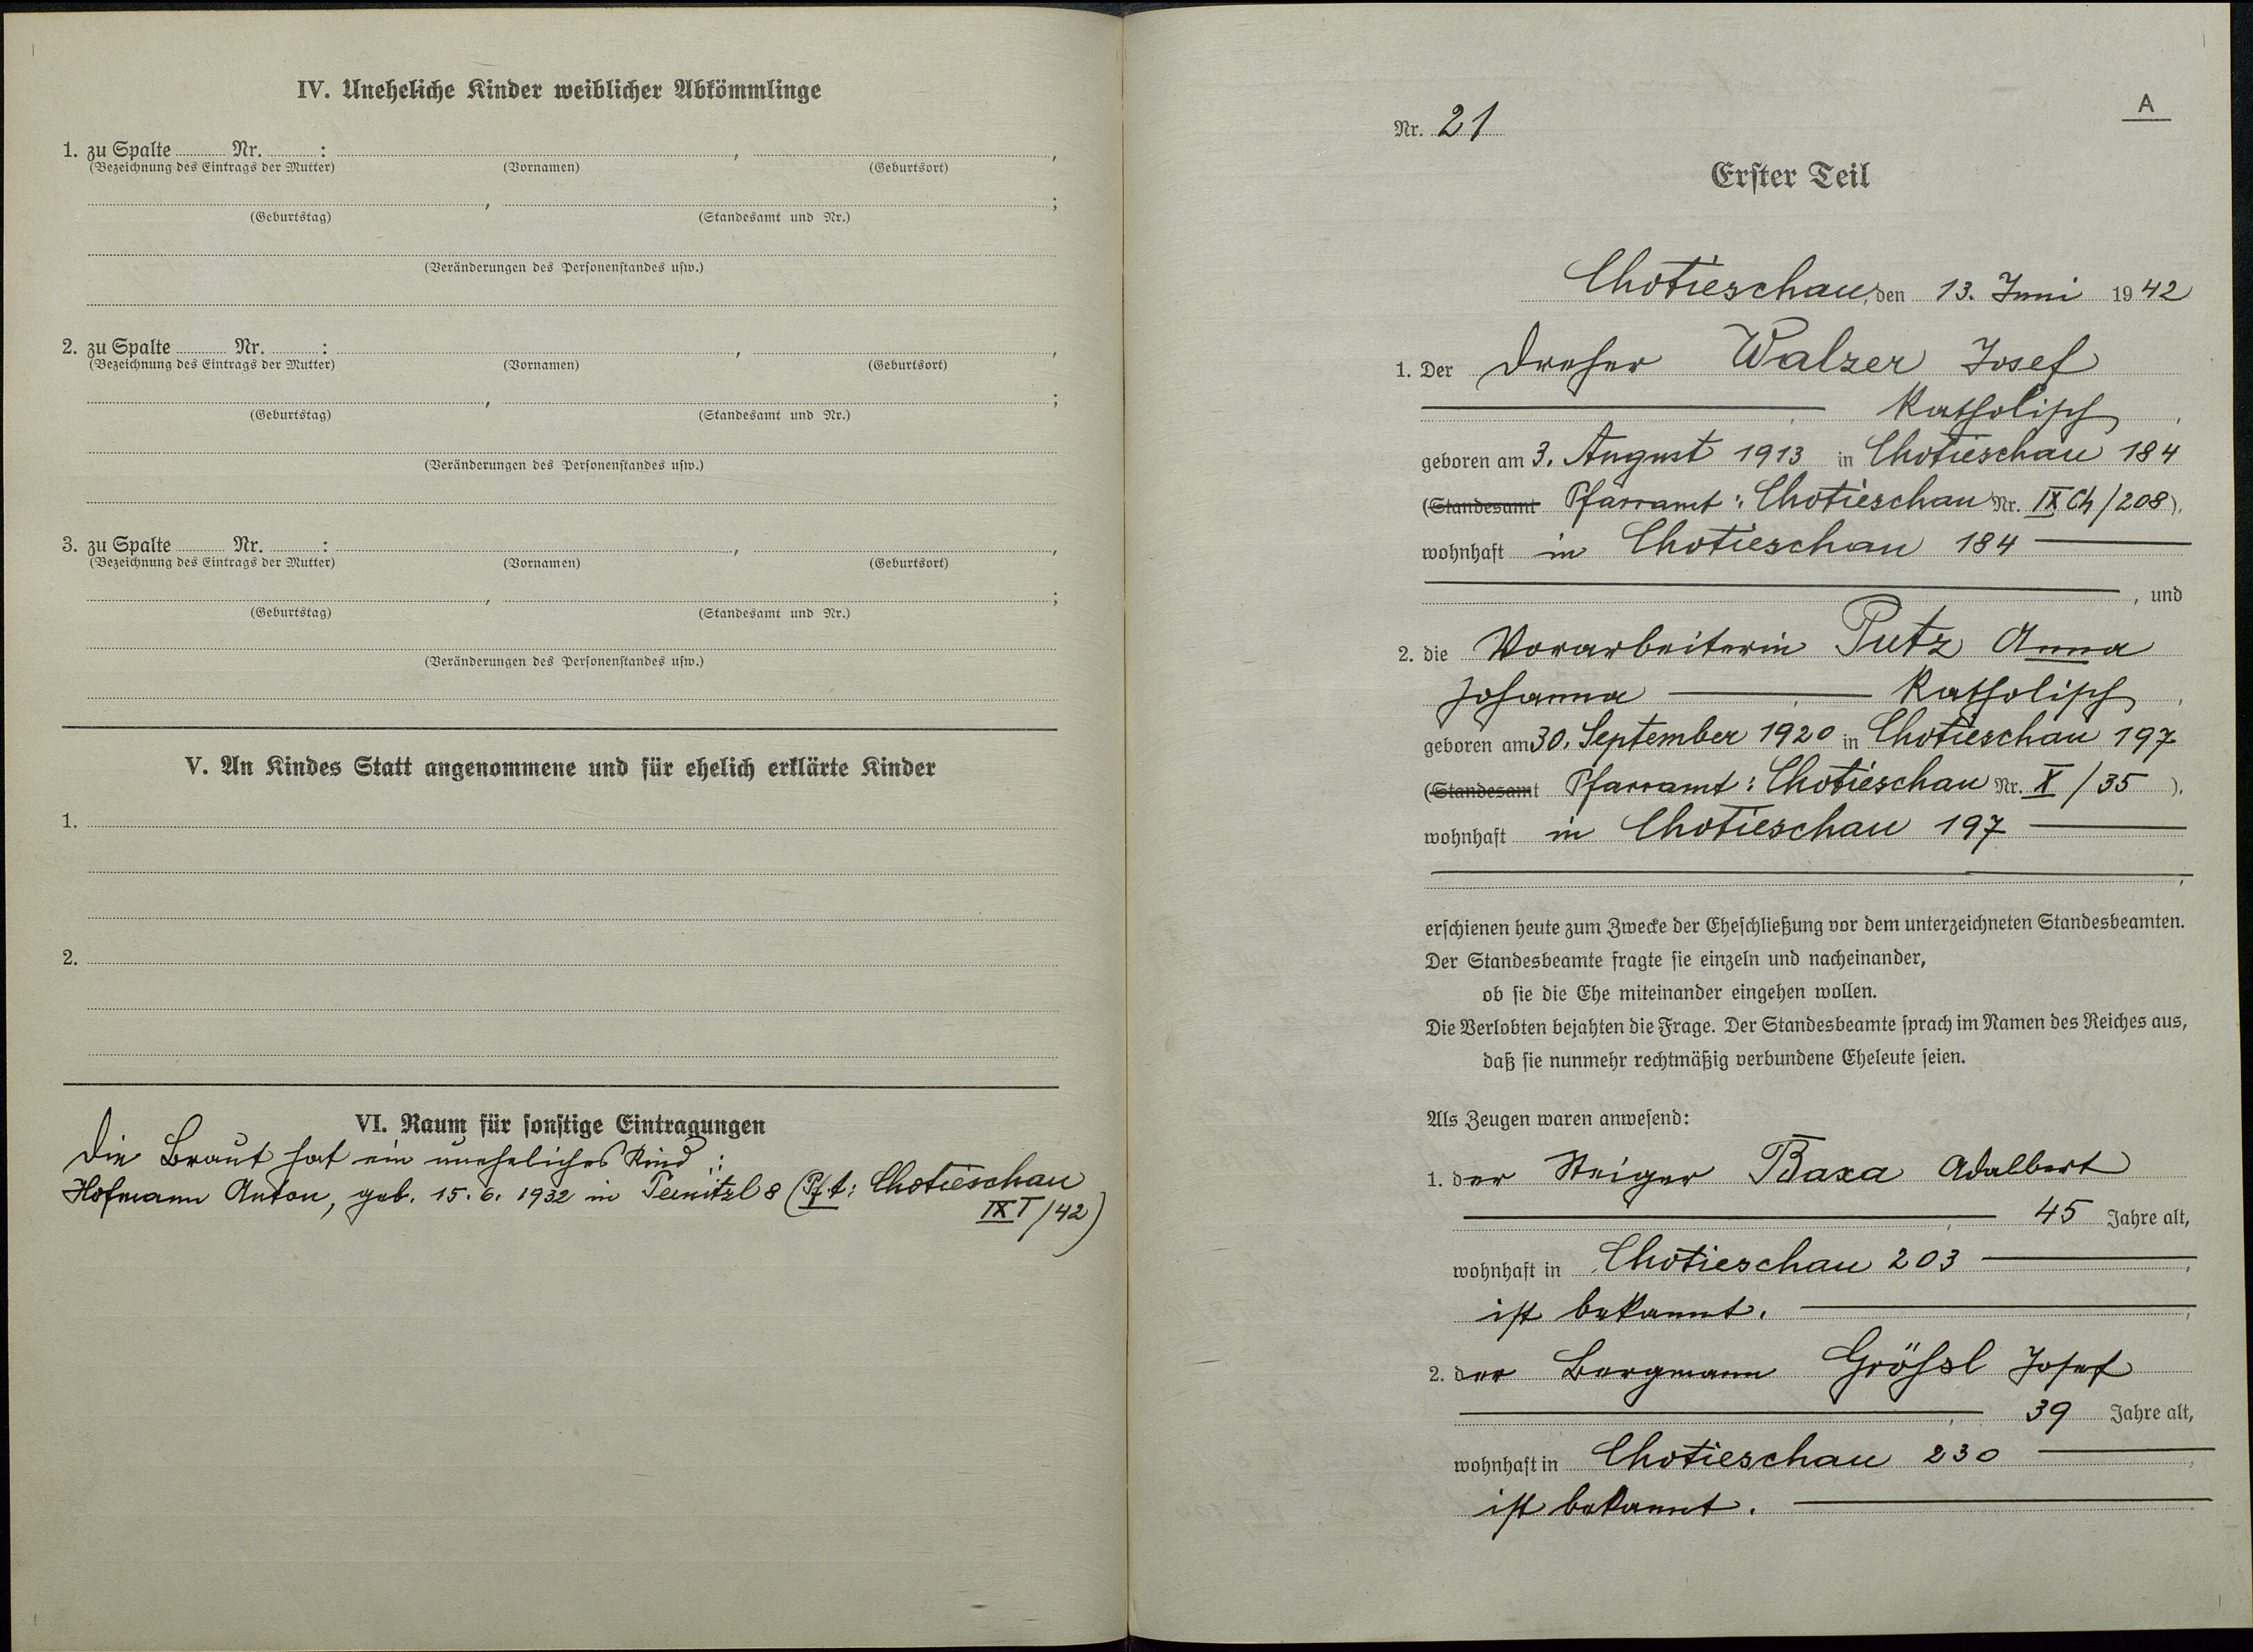 IV. Uneheliche Kinder weiblicher Abkömmlinge
1. zu Spalte Nr. : , ,
(Bezeichnung des Eintrags der Mutter) (Vornamen) (Geburtsort)
, ;
(Geburtstag) (Standesamt und Nr.)
(Veränderungen des Personenstandes usw.)
2. zu Spalte Nr. : , ,
(Bezeichnung des Eintrags der Mutter) (Vornamen) (Geburtsort)
, ;
(Geburtstag) (Standesamt und Nr.)
(Veränderungen des Personenstandes usw.)
3. zu Spalte Nr. : , ,
(Bezeichnung des Eintrags der Mutter) (Vornamen) (Geburtsort)
, ;
(Geburtstag) (Standesamt und Nr.)
(Veränderungen des Personenstandes usw.)
V. An Kindes Statt angenommene und für ehelich erklärte Kinder
1.
2.
VI. Raum für sonstige Eintragungen
Die Braut hat ein uneheliches Kind:
Hofmann Anton, geb. 15.6.1932 in 8 (Pf.t: Chotieschau
IX T/42)
A
Nr. 21
Erster Teil
Chotieschau, den 13. Juni 1942
1. Der Dreher Walzer Josef
katholisch,
geboren am 3. August 1913 in Chotieschau 184
(Standesamt Pfarramt: Chotieschau Nr. IX Ch/208),
wohnhaft in Chotieschau 184
, und
2. die Vorarbeiterin Putz Anna
Johanna katholisch,
geboren am 30. September 1920 in Chotieschau 197
(Standesamt Pfarramt: Chotieschau Nr. X/35),
wohnhaft in Chotieschau 197
,
erschienen heute zum Zwecke der Eheschließung vor dem unterzeichneten Standesbeamten.
Der Standesbeamte fragte sie einzeln und nacheinander,
ob sie die Ehe miteinander eingehen wollen.
Die Verlobten bejahten die Frage. Der Standesbeamte sprach im Namen des Reiches aus,
daß sie nunmehr rechtmäßig verbundene Eheleute seien.
Als Zeugen waren anwesend:
1. der Steiger Baxa Adalbert
, 45 Jahre alt,
wohnhaft in Chotieschau 203,
ist bekannt.
2. der Bergmann Größl Josef
, 39 Jahre alt,
wohnhaft in Chotieschau 230,
ist bekannt.